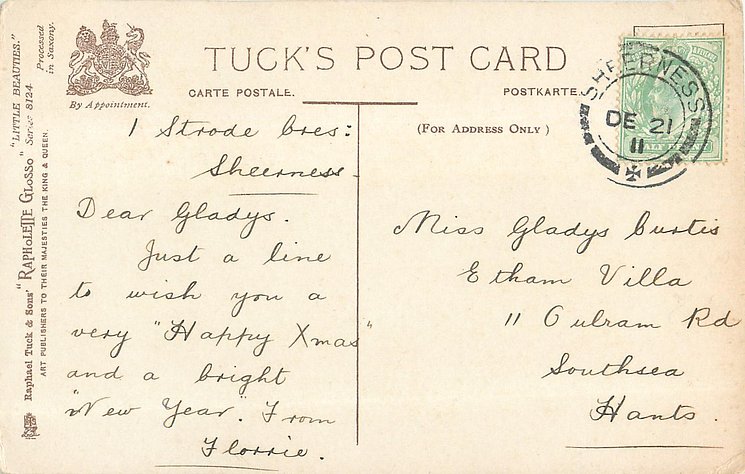 TUCK'S POST CARD
CARTE POSTALE.
POSTKARTE
By Appointment.
(FOR ADDRESS ONLY)
SHEERNESS
DE 21
11
HALF PENNY
1 Strode Cres:
Sheerness
Dear Gladys.
Just a line
to wish you a
very "Happy Xmas"
and a bright
"New Year". From
Florrie.
Miss Gladys Curtis
Etham Villa
11 Outram Rd
Southsea
Hants.
Raphael Tuck & Sons' "RAPHOLETTE GLOSSO" "LITTLE BEAUTIES." Series 8124. Processed in Saxony.
ART PUBLISHERS TO THEIR MAJESTIES THE KING & QUEEN.